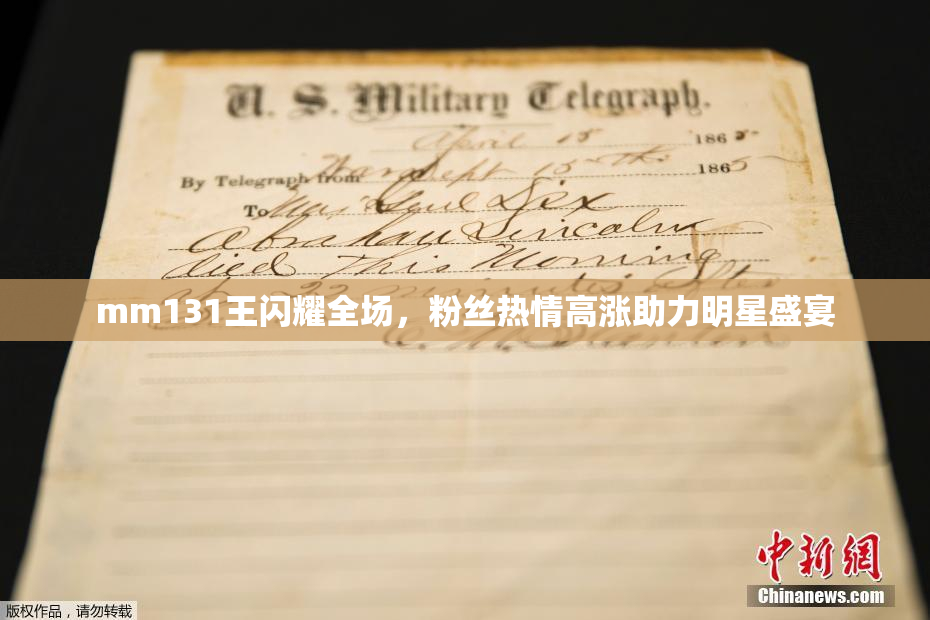 U. S. Military Telegraph.
April 15 1865
By Telegraph from War Dept 15th 1865
To Maj Genl Dix
Abraham Lincoln
died This Morning
at 22 minutes after
mm131王闪耀全场，粉丝热情高涨助力明星盛宴
E. M. Stanton
中新网
Chinanews.com
版权作品，请勿转载